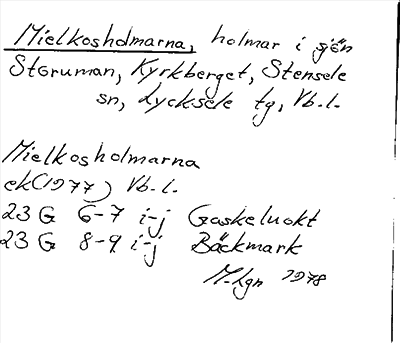 Mielkosholmarna, holmar i sjön
Storuman, Kyrkberget, Stensele
sn, Lycksele tg, Vb.l.
Mielkosholmarna
ek(1977) Vb.l.
23 G 6-7 i-j Gaskeluokt
23 G 8-9 i-j Bäckmark
M.hgn 1978